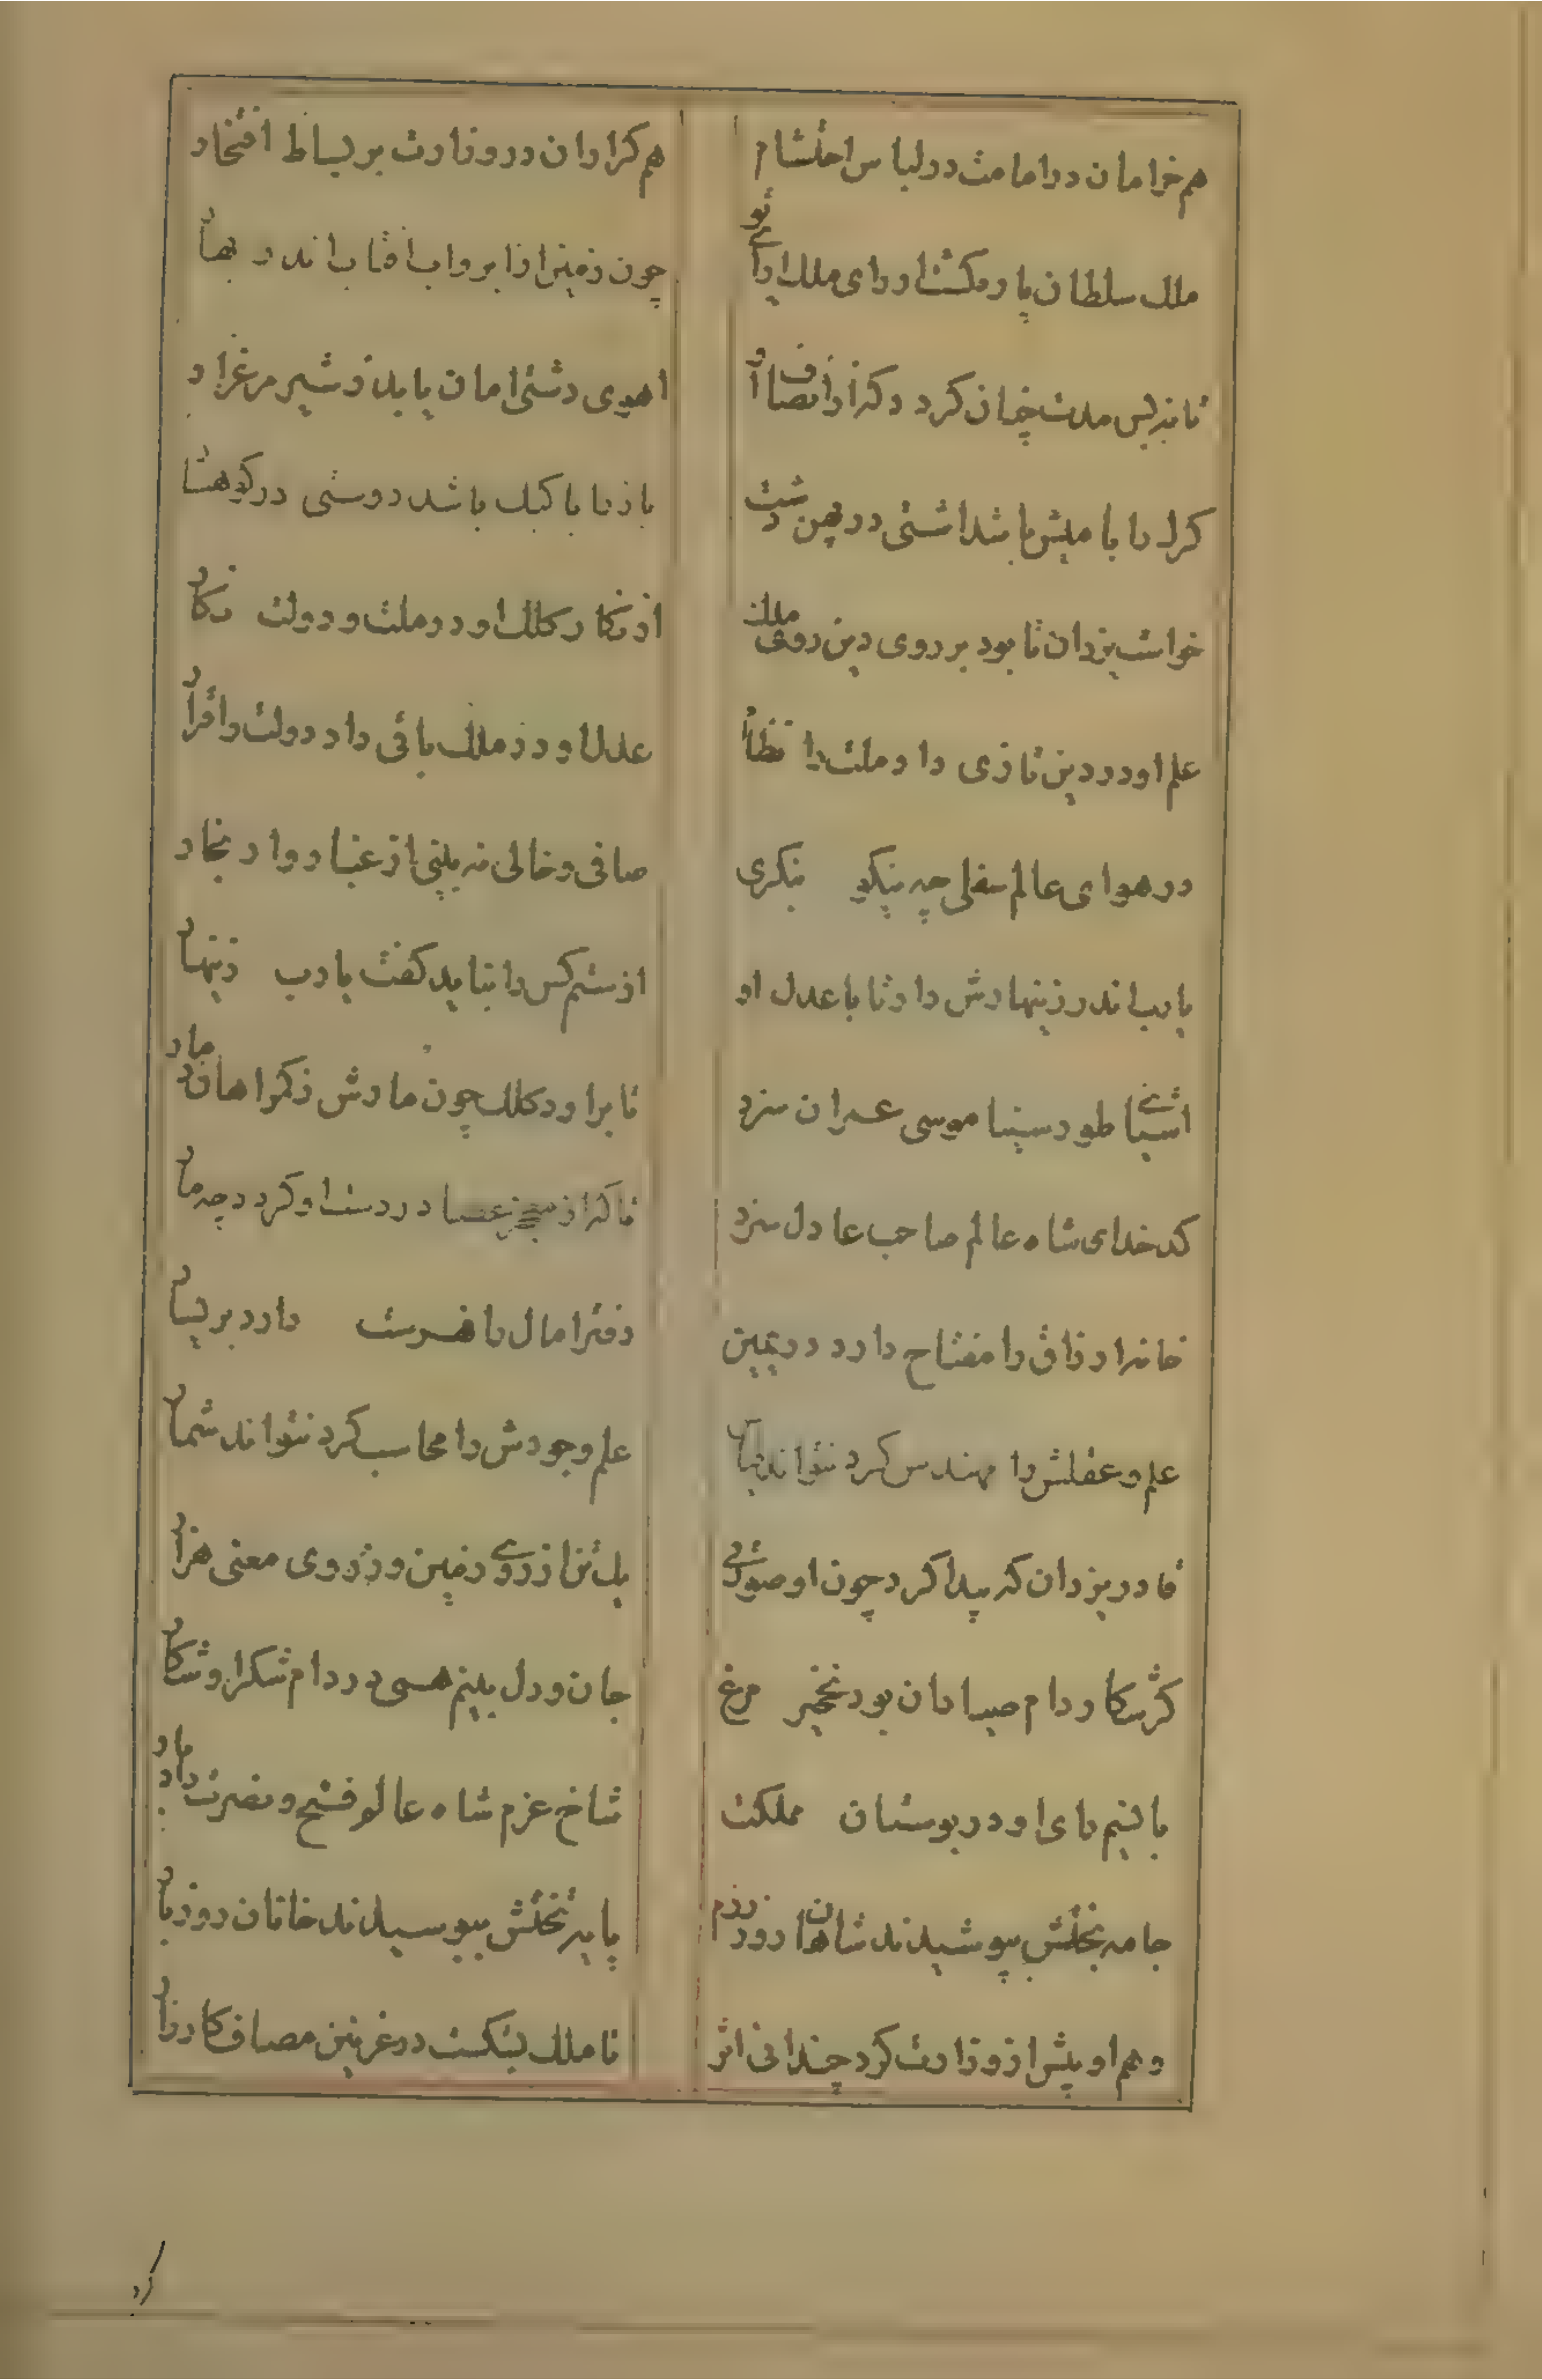 هم خرامان در امامت در لباس احتشام
هم کرازان در وزارت بر بساط افتخار
ملک سلطان یار مکشت از رای ملک ارای تو
چون زمین از ابر و اب افتاب اندر بهار
تا نه بس مدت چنان کردد که از انصاف او
اهوی دشتی امان یابد ز شیر مرغزار
کرک را با میش باشد اشتی در پهن دشت
باز را با کبک باشد دوستی در کوهسار
خواست یزدان تا بود بر روی دین روی ملک
از نکار کلک او در ملت و دولت نکار
علم او در دین تازی داد ملت را نظام
عدل او در ملک باقی داد دولت را قرار
در هوای عالم سفلی چه نیکو بنکری
صافی و خالی نه بینی از غبار و از بخار
یارب اندر زینهارش دار تا با عدل او
از ستم کس را نباید کفت یارب زینهار
اسیای طور سینا موسی عمران سزد
تا براورد کلک چون مارش ز کمراهان دمار
کدخدای شاه عالم صاحب عادل سزد
تا که از عصا در دست او کردد چه مار
خانه ارزاق را مفتاح دارد در یمین
دفتر امال را فهرست دارد بر یسار
علم و عقلش را مهندس کرد نتواند قیاس
علم و جودش را محاسب کرد نتواند شمار
قادر یزدان که پیدا کرد چون او صورتی
یک تن از روی زمین وز روی معنی هزار
کر شکار و دام صیادان بود نخچیر مرغ
جان و دل بینم همی در دام شکر او شکار
با نسیم رای او در بوستان مملکت
شاخ عزم شاه عالم فتح و نصرت داد بار
جامه بختش بپوشیدند شاهان روز رزم
پایه تختش ببوسیدند خانان روز بار
وهم او پیش از وزارت کرد چندانی اثر
تا ملک بشکست در غزنین مصاف کارزار
کرد